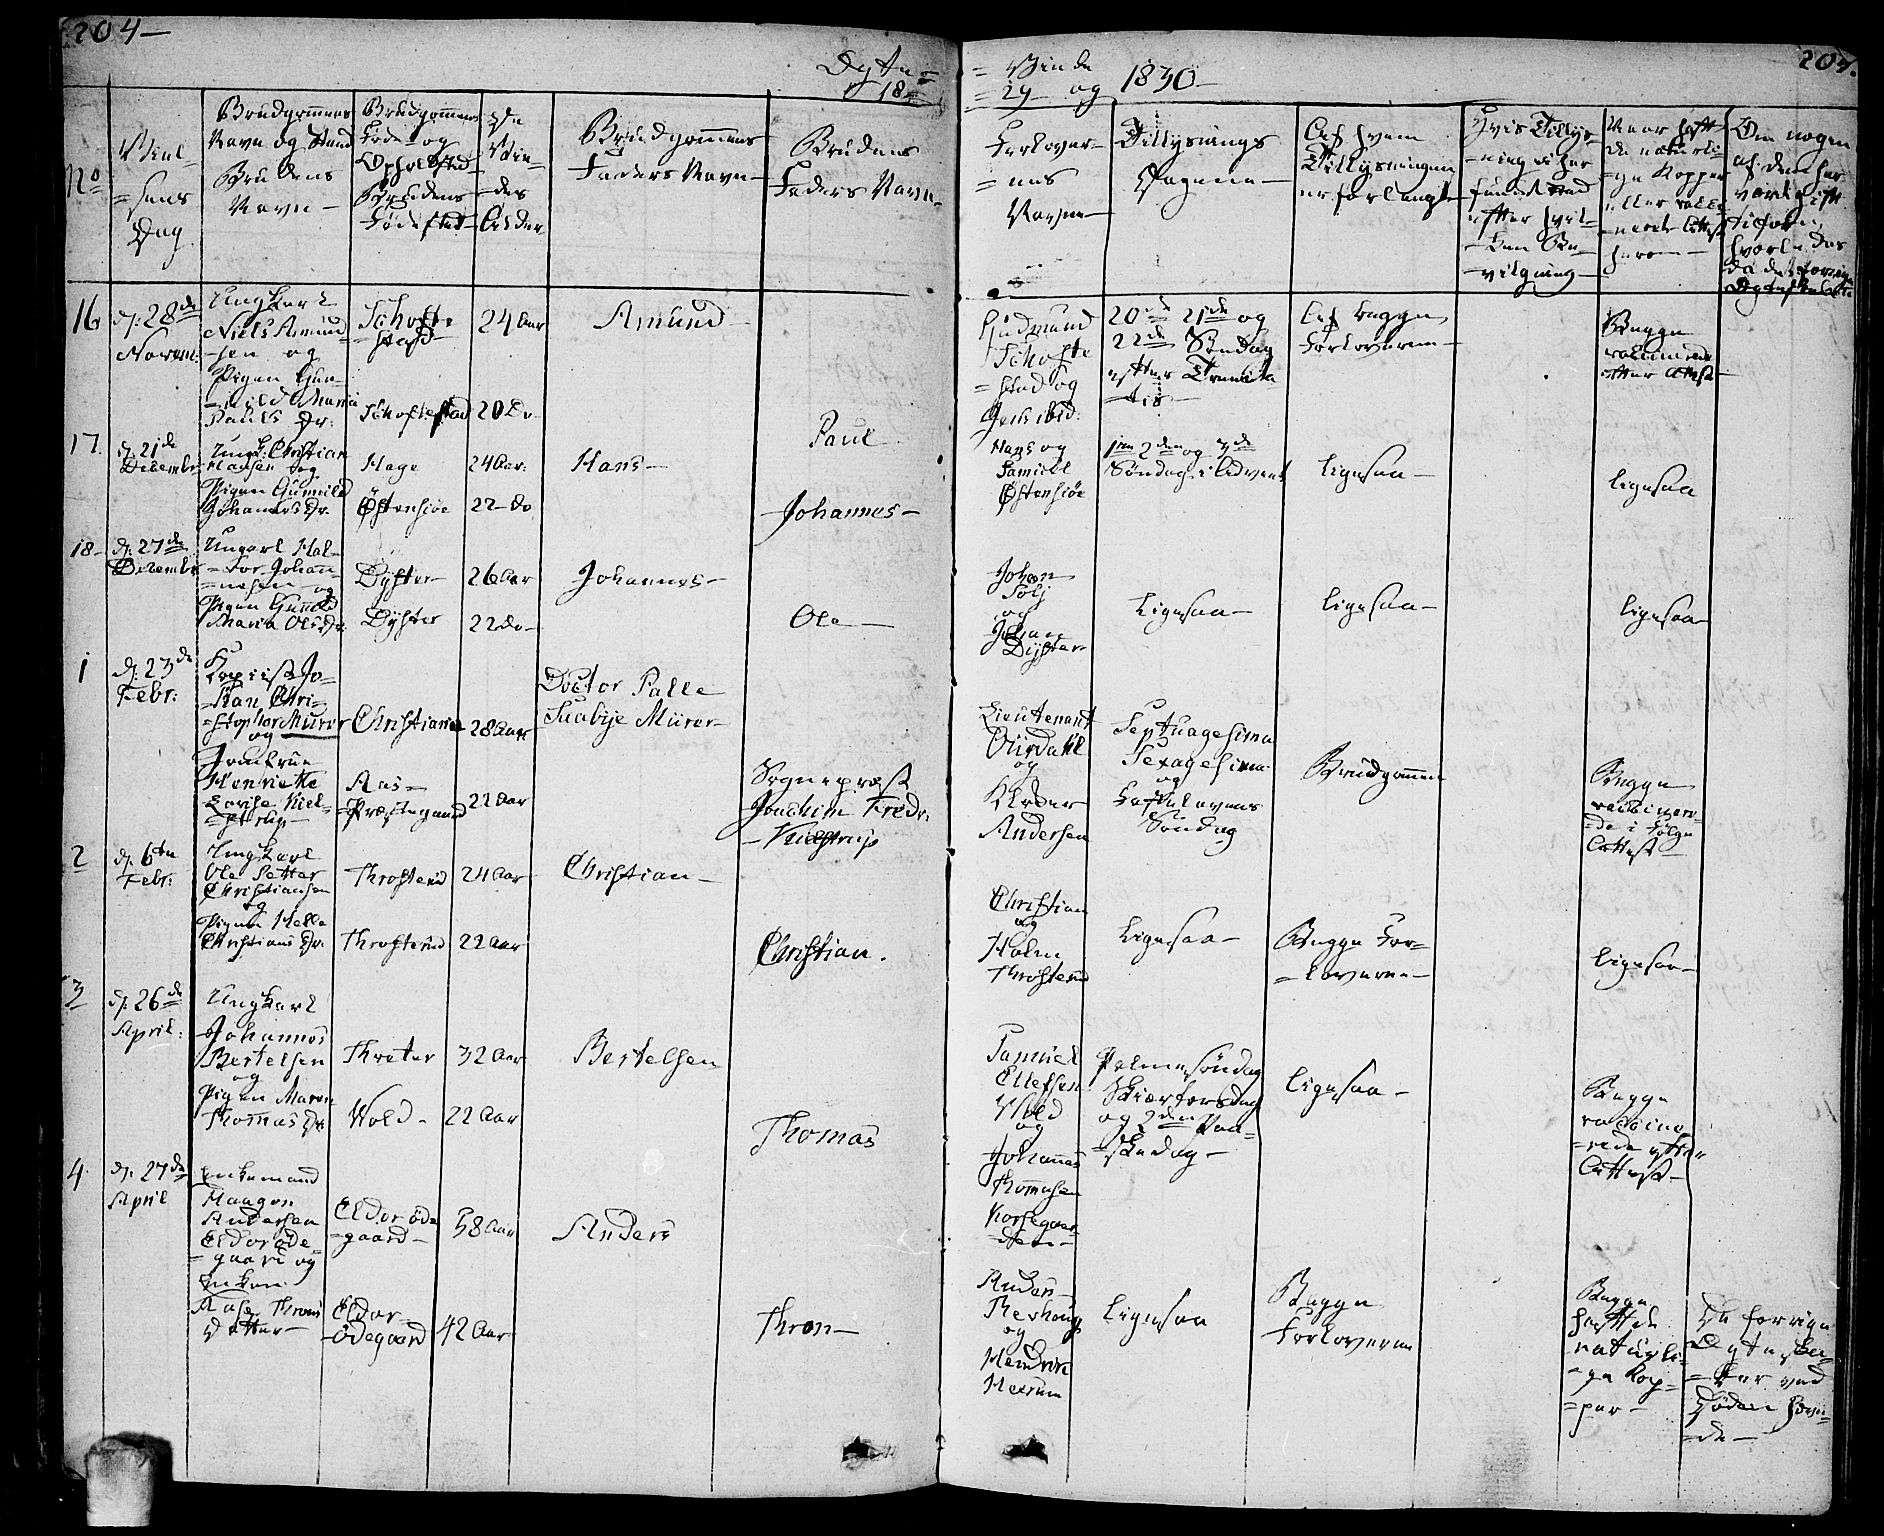 204
Ægte=
18=
=Viede
=29 og 1830
205.
No
Viel-
=sens
Dag
Brudgommens
Navn og Stand
Brudens
Navn
Brudgommens
Føde og
Opholdsted
Brudens
Fødested
De
Vie-
=des
Alder
Brudgommens
Faders Navn
Brudens
Faders Navn
Forlover-
=nes
Navne
Tillysnings
Dagene
Af hvem
Tillysningen
er forlangt
Hvis Tillys-
=ning ei har
fundet Sted
efter hvil-
=ken Be-
=vilgning
Naar havt
de naturli-
=ge Kopper
eller vacci-
=nerede Attest
herom
Om nogen
af dem har
været gift
tilforn,
16
d: 28de
Novem.
Ungkarl
Niels Amund
=sen og
Pigen Gun-
=nild Maria
Pauls Dr:
Schofte
=stad
Schoftestad
24 Aar
20 Do
Amund
Paul
Gudmund
Schofte
=stad og
Jens ibid:
20de 21de og
22de Søndag
efter Trinita
=tis
Af begge
Forloverne
Begge
vaccinerede
efter Attest
17.
d. 21de
December
Ungk: Christian
Hansen og
Pigen Gunnild
Johannes Dr.
Hage
Østensiøe
24 Aar:
22 do
Hans
Johannes
Hans og
Samuel
Østensiøe
1ste 2den og 3de
Søndag i Advent
Ligesaa
Ligesaa
18
d. 27de
December
Ungkarl Hal-
=vor Johan-
=nesen og
Pigen Gunild
Maria Ols Dr.
Dyster
Dyster
26 Aar
22 do
Johannes
Ole
Johan
og
Johan
Dyster
Ligesaa
Ligesaa
Ligesaa
1
d: 23de
Febr:
Kopiist Jo-
=han Chri-
=stopher Mürer
og
Jomfrue
Henriette
Lovise Kiel-
=strup
Christiania
Aas
Præstegaard
28 Aar
22 Aar
Doctor Palle
Tuxbye Mürer
Sognepræst
Joachim Fredr:
Kielstrup
Lieutenant
og
Andersen
Septuagesima
Sexagesima
og
Fastelavens
Søndag
Brudgommen
Begge
vaccinere-
=de i Følge
Attest
2
d: 6te
Febr:
Ungkarl
Ole Petter
Christiansen
og
Pigen Helle
Christians Dr.
Throsterud
Throsterud
24 Aar
22 Aar
Christian
Christian.
Christian
og
Holm
Throsterud
Ligesaa
Begge For-
=loverne
Ligesaa
3
d: 26de
April:
Ungkarl
Johannes
Bertelsen
og
Pigen Maren
Thomas Dr.
Thræter
Wold
32 Aar
22 Aar
Bertelsen
Thomas
Samuel
Ellefsen
Wold
og
Johannes
Thomesen
Korsegaar
=den
Palmesøndag
Skiærtorsdag
og 2den Paa-
=skedag
Ligesaa
Begge
vaccine-
=rede efter
Attest
4
d: 27de
April
Enkemand
Haagen
Andersen
Eldorøde-
=gaard og
Enken
Aase Throns
Datter
Eldorøde
=gaard
Eldor-
=ødegaard
58 Aar
42 Aar
Anders
Thron
Anders
Revhoug
og
Hendrik
Herum
Ligesaa
Begge
Forloverne
Begge
havt de
naturli-
=ge Kop-
=per
De forrige
Ægteskab-
=er ved
Døden hæve-
=de